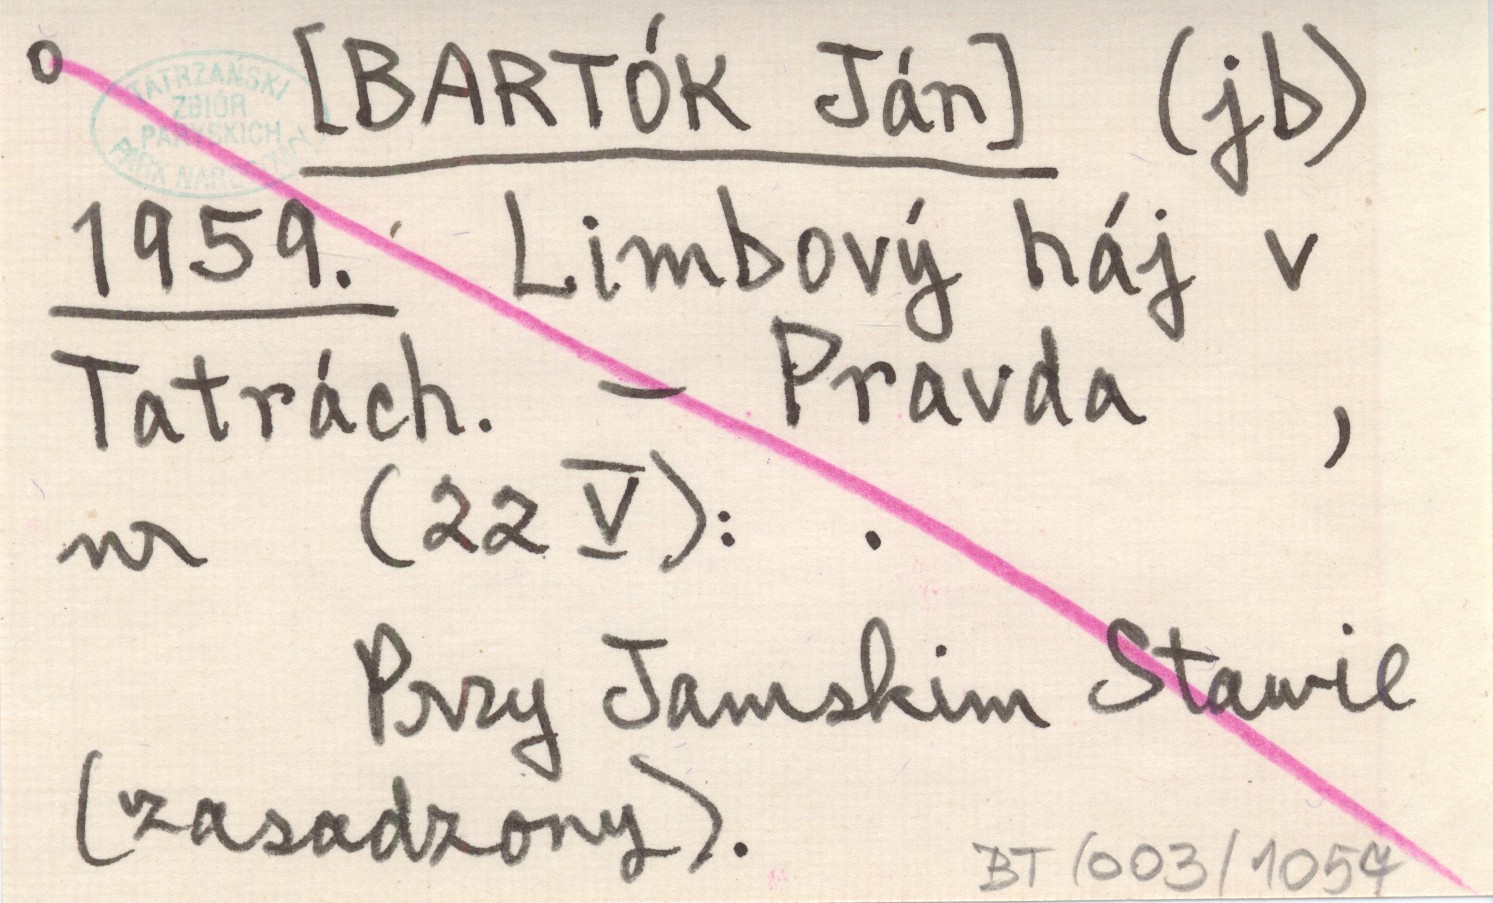 o [BARTÓK Ján] (jb)
TATRZAŃSKI
ZBIÓR
PARYSKICH
PARK NARODOWY
1959. Limbový háj v
Tatrách. – Pravda ,
nr (22 V): .
Przy Jamskim Stawie
(zasadzony).
BT/003/1054